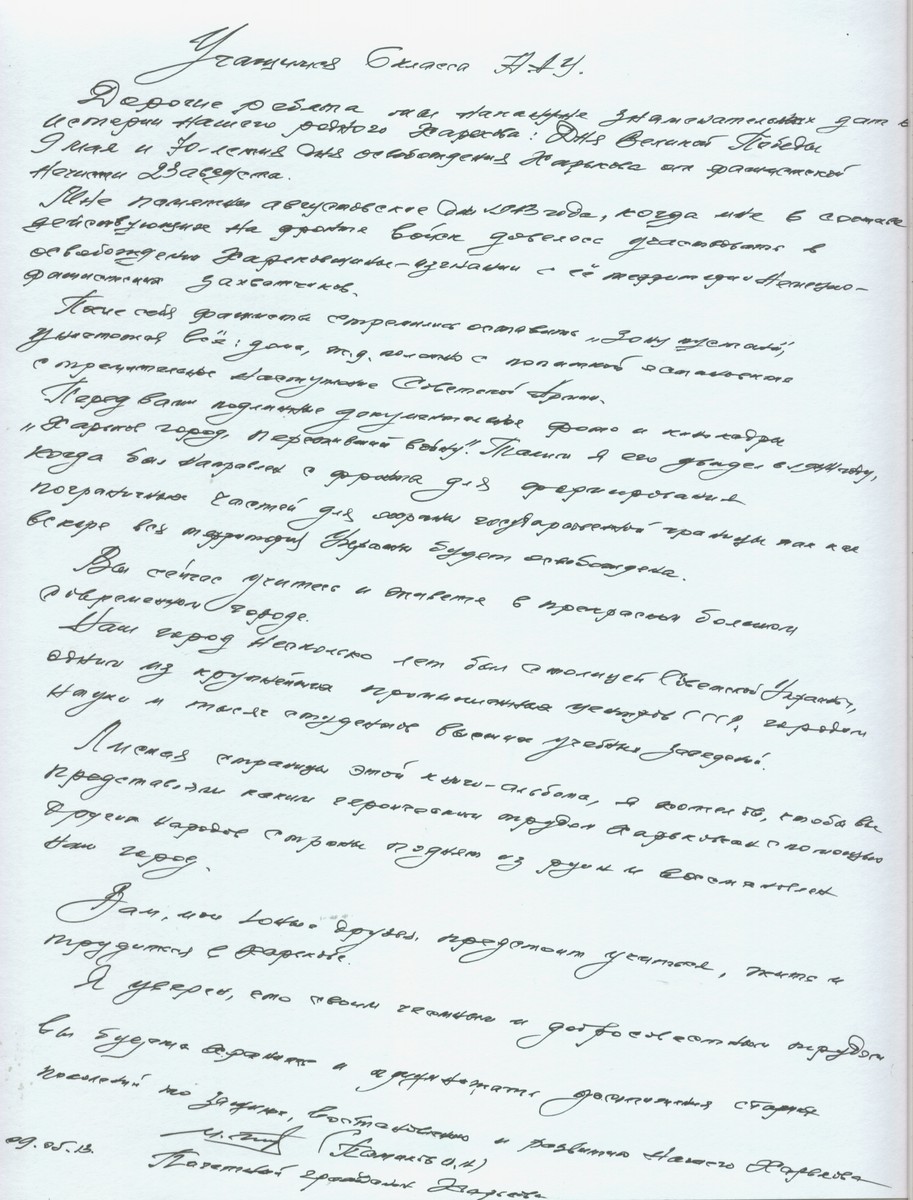 Учащимся 6 класса
Дорогие ребята мы накануне знаменательных дат в
истории нашего родного Харькова: Дня Великой Победы
9 мая и 70-летия дня освобождения Харькова от фашистской
нечисти 23 августа.
Мне памятны августовские дни 1943 года, когда мне в составе
действующих на фронте войск довелось участвовать в
освобождении Харьковщины – изгнании с её территории Немецко-
фашистских захватчиков.
После себя фашисты стремились оставить „Зону пустыни",
уничтожая всё: дома, ж.д. полотно с попыткой остановить
стремительное наступление Советской Армии.
Перед вами подлинные документальные фото и кинокадры
„Харьков город, переживший войну". Таким я его увидел в
когда был направлен с фронта для формирования
пограничных частей для охраны государственной границы так как
вскоре вся территория Украины будет освобождена.
Вы сейчас учитесь и живете в прекрасном большом
современном городе.
Наш город несколько лет был столицей Советской Украины,
одним из крупнейших промышленных центров СССР, городом
науки и тысяч студентов высших учебных заведений.
Листая страницы этой книги-альбома, я хотел бы, чтобы вы
представили каким героическим трудом харьковчан с помощью
других народов страны поднят из руин и восстановлен
наш город.
Вам, мои юные друзья, предстоит учиться, жить и
трудиться в Харькове.
Я уверен, что своим честным и добросовестным трудом
вы будете хранить и приумножать достижения старших
поколений по защите, восстановлению и развитию нашего Харькова
09.05.13.
Почетный гражданин Харькова